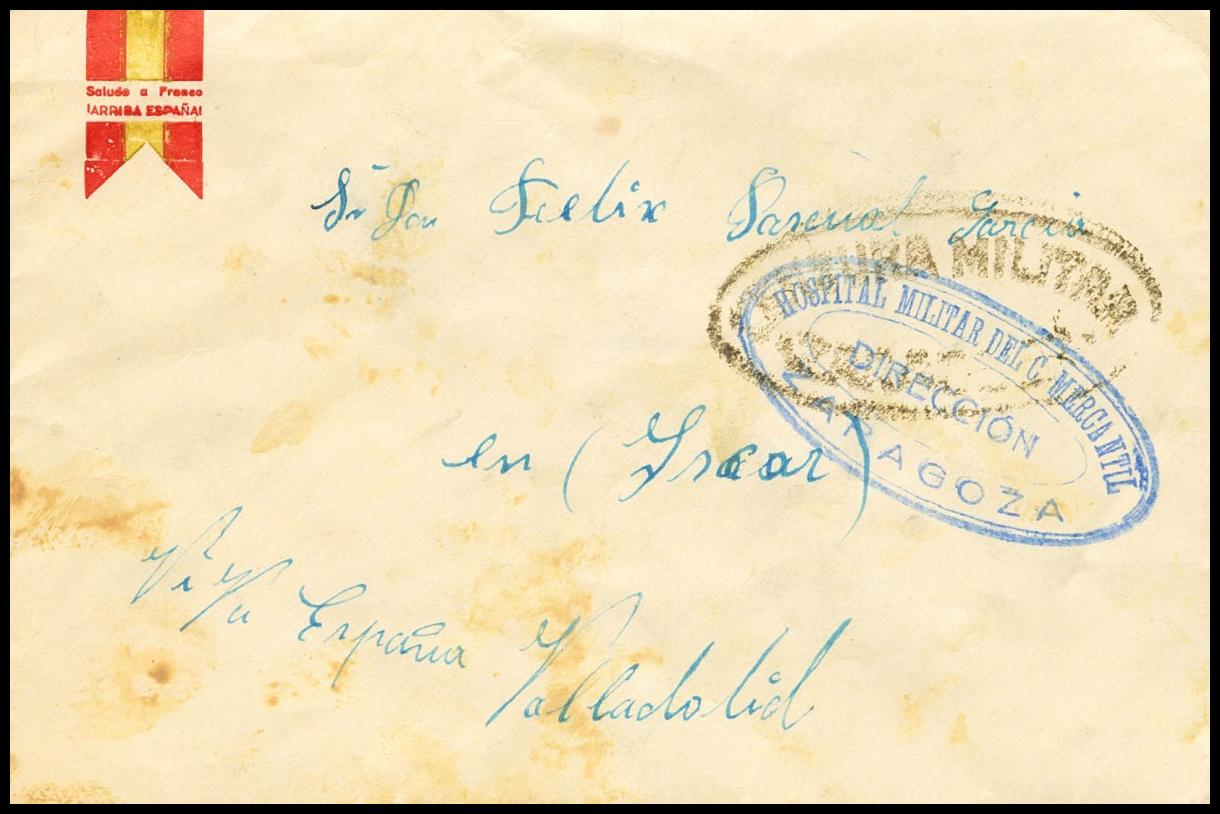 Saludo a Franco
¡ARRIBA ESPAÑA!
Sr Don Felix Pascual Garcia
CENSURA MILITAR
HOSPITAL MILITAR DEL C. MERCANTIL
DIRECCIÓN
ZARAGOZA
en (Iscar)
Viva España
Valladolid